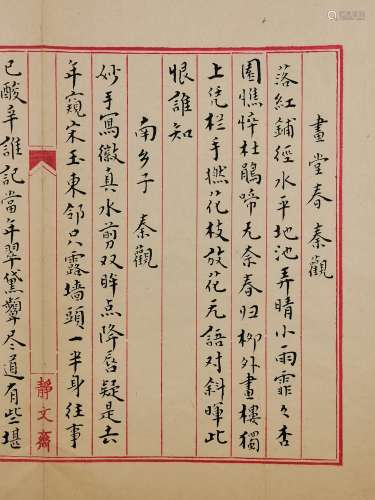 畫堂春 秦觀
落紅鋪徑水平地池弄晴小雨霏々杏
園憔悴杜鵑啼无奈春归柳外畫樓獨
上凭栏手撚花枝放花无語对斜暉此
恨誰知
南乡子 秦觀
妙手寫徽真水剪双眸点降唇疑是去
年窺宋玉東邻只露墙頭一半身往事
靜文齋
已酸辛誰記當年翠黛顰尽道有些堪